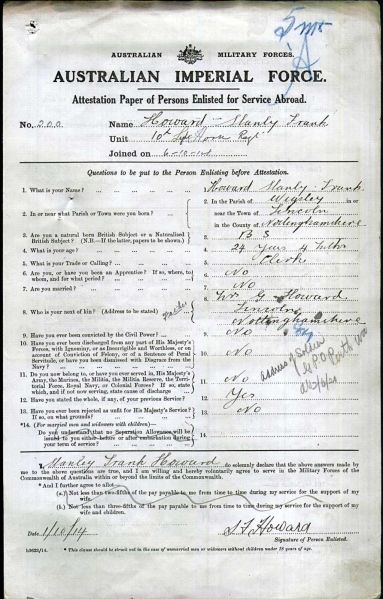 5 mt
AUSTRALIAN MILITARY FORCES.
AUSTRALIAN IMPERIAL FORCE.
Attestation Paper of Persons Enlisted for Service Abroad.
No. 200 Name Howard Stanly Frank
Unit 10th Lt Horse Regt
Joined on 6-10-14
Questions to be put to the Person Enlisting before Attestation.
1. What is your Name? 1. Howard Stanly Frank
2. In or near what Parish or Town were you born? 2. In the Parish of Wigsley in or
near the Town of Lincoln
in the County of Nottinghamshire
3. Are you a natural born British Subject or a Naturalised
British Subject? (N.B.—If the latter, papers to be shown.) 3. B S
4. What is your age? 4. 24 years 4 mths
5. What is your Trade or Calling? 5. Clerk
6. Are you, or have you been an Apprentice? If so, where, to
whom, and for what period? 6. No
7. Are you married? 7. No
8. Who is your next of kin? (Address to be stated) 8. G Howard
Lincoln
Nottinghamshire
9. Have you ever been convicted by the Civil Power? 9. No
10. Have you ever been discharged from any part of His Majesty's
Forces, with Ignominy, or as Incorrigible and Worthless, or on
account of Conviction of Felony, or of a Sentence of Penal
Servitude, or have you been dismissed with Disgrace from the
Navy? 10. No
11. Do you now belong to, or have you ever served in, His Majesty's
Army, the Marines, the Militia, the Militia Reserve, the Territorial
Force, Royal Navy, or Colonial Forces? If so, state
which, and if not now serving, state cause of discharge 11. No
12. Have you stated the whole, if any, of your previous Service? 12. Yes
13. Have you ever been rejected as unfit for His Majesty's Service?
If so, on what grounds? 13. No
*14. (For married men and widowers with children)
Do you understand that no Separation Allowance will be
issued to you either before or after embarkation during
your term of service? 14.
Address of Soldier
G.P.O Perth WA
I, Stanley Frank Howard do solemnly declare that the above answers made by
me to the above questions are true, and I am willing and hereby voluntarily agree to serve in the Military Forces of the
Commonwealth of Australia within or beyond the limits of the Commonwealth.
*And I further agree to allot
(a.) Not less than two-fifths of the pay payable to me from time to time during my service for the support of my
wife.
(b.) Not less than three-fifths of the pay payable to me from time to time during my service for the support of my
wife and children.
Date 1/10/14 S F Howard
Signature of Person Enlisted.
* This clause should be struck out in the case of unmarried men or widowers without children under 18 years of age.